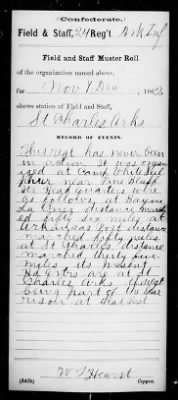 Confederate.
Field & Staff, 24 Reg't Ark Inf
Field and Staff Muster Roll
of the organization named above,
for Nov & Dec, 1862
shows station of Field and Staff,
St Charles Arks
RECORD OF EVENTS.
This regt has never been
in action. It was organ
ized at Camp White Sul
phur near Pine Bluff
Head quarters were
as follows, at Bayou
distance march
ed fifty six miles at
Arkansas Post distance
marched fifty miles
at St Charles, distance
marched thirty five
miles its present
Hd Qrtrs are at St
Charles Arks the regt
being part of the Gar
rison at that Post
Copyist.